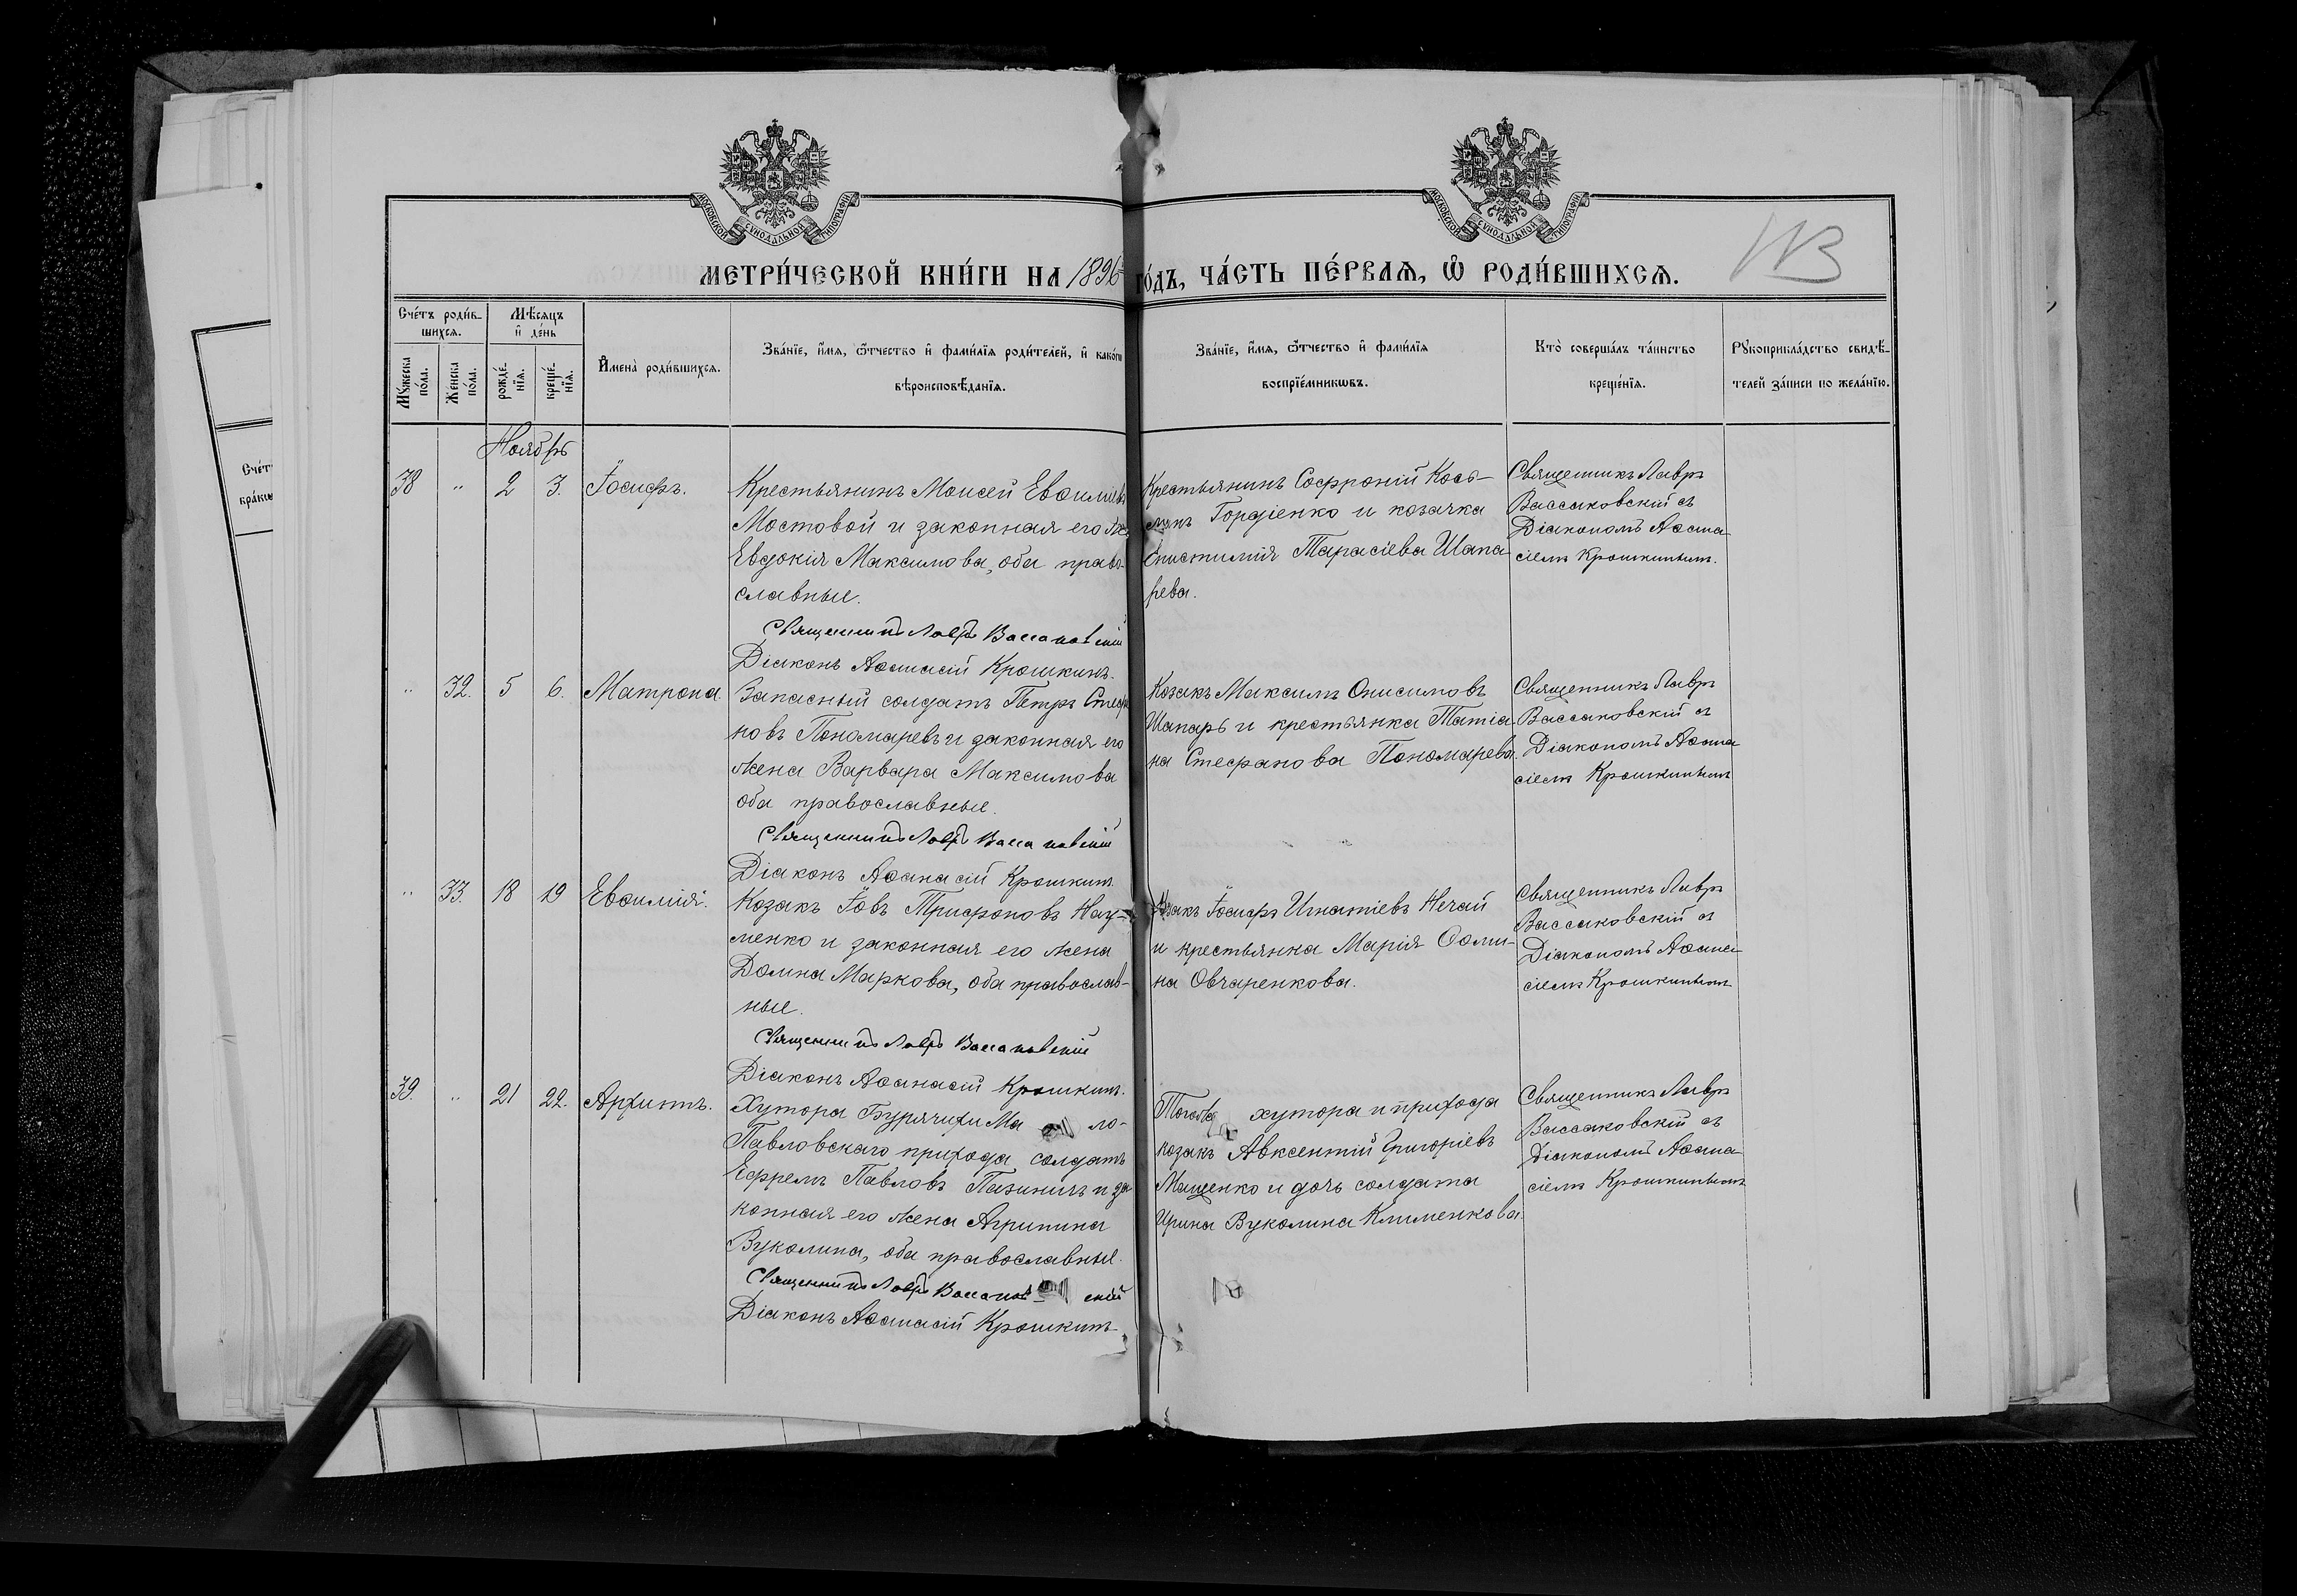 МОСКОВСКОЙ СѴНОДАЛЬНОЙ ТИПОГРАФІИ
МОСКОВСКОЙ СѴНОДАЛЬНОЙ ТИПОГРАФІИ
МЕТРИ́ЧЕСКОЙ КНИ́ГИ НА 1896 ГО́ДЪ, ЧА́СТЬ ПЕ́РВАЯ, Ѡ҆ РОДИ́ВШИХСЯ.
Сче́тъ роди́в-
шихся.
Мѣ́сяцъ
и҆ де́нь
Мꙋ́жеска
по́ла.
Же́нска
по́ла.
рожде́-
нїя.
креще́-
нїя.
И҆мена̀ роди́вшихся.
Зва́нїе, и҆́мя, ѻ҆́тчество и҆ фами́лїя роди́телей, и҆ како́гѡ
вѣроисповѣ́данїя.
Зва́нїе, и҆́мя, ѻ҆́тчество и҆ фами́лїя
воспрїе́мникѡвъ.
Кто̀ соверша́лъ та́инство
креще́нїя.
Рꙋкоприкла́дство свидѣ́-
телей за́писи по жела́нїю.
Сче́т
бра́кѡ
Ноябрь
38 " 2 3. Іосифъ.
Крестьянинъ Моисей Евѳиміевъ
Мостовой и законная его же
Евдокія Максимова, оба право-
славные.
Священникъ Лавръ Вассаковскій
Діаконъ Аѳанасій Крошкинъ.
Крестьянинъ Софроній Косъ-
минъ Гордіенко и козачка
Епистимія Тарасіева Шапа-
рева.
Священникъ Лавръ
Вассаковскій съ
Діакономъ Аѳана-
сіемъ Крошкинымъ.
" 32. 5 6. Матрона
Запасный солдатъ Петръ Стефа
новъ Пономаревъ и законная его
жена Варвара Максимова
оба православные.
Священникъ Лавръ Вассаковскій
Діаконъ Аѳанасій Крошкинъ
Козакъ Максимъ Онисимовъ
Шапарь и крестьянка Татіа-
на Стефанова Пономарева.
Священникъ Лавръ
Вассаковскій съ
Діакономъ Аѳана-
сіемъ Крошкинымъ
" 33. 18 19 Евѳимія.
Козакъ Іовъ Трифоновъ Нау-
менко и законная его жена
Домна Маркова, оба православ-
ные.
Священникъ Лавръ Вассаковскій
Діаконъ Аѳанасій Крошкинъ.
Козакъ Іосифъ Игнатіевъ Нечай
и крестьянка Марія Ѳоми-
на Овчаренкова.
Священникъ Лавръ
Вассаковскій съ
Діакономъ Аѳана-
сіемъ Крошкинымъ
39. " 21 22. Архиппъ.
Хутора Бурячихи Ма ло-
Павловскаго прихода солдатъ
Ефремъ Павловъ Пазиничъ и за
конная его жена Агрипина
Вуколина, оба православные.
Священникъ Лавръ Вассаков скій
Діаконъ Аѳанасій Крошкинъ
Тогоже хутора и прихода
козакъ Авксентій Григоріевъ
Мащенко и дочь солдата
Ирина Вуколина Клименкова.
Священникъ Лавръ
Вассаковскій съ
Діакономъ Аѳана-
сіемъ Крошкинымъ